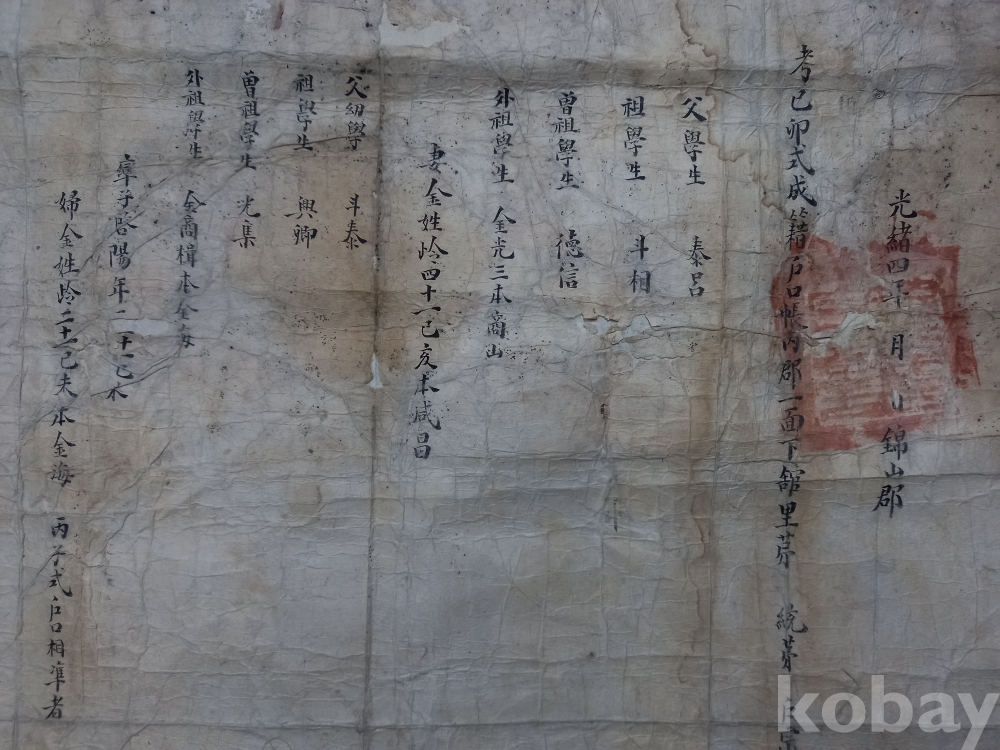 光緒四年 月 日 錦山郡
考己卯式成籍戶口帳內郡一面下舘里苐 統苐
父學生 泰呂
祖學生 斗相
曽祖學生 德信
外祖學生 金光三本高山
妻金姓岭四十一己亥本咸昌
父幼學 斗泰
祖學生 興卿
曽祖學生 光集
外祖學生 金商楫本金海
率子啓陽年二十一己未
婦金姓岭二十一己未本金海 丙子式戶口相凖者
kobay